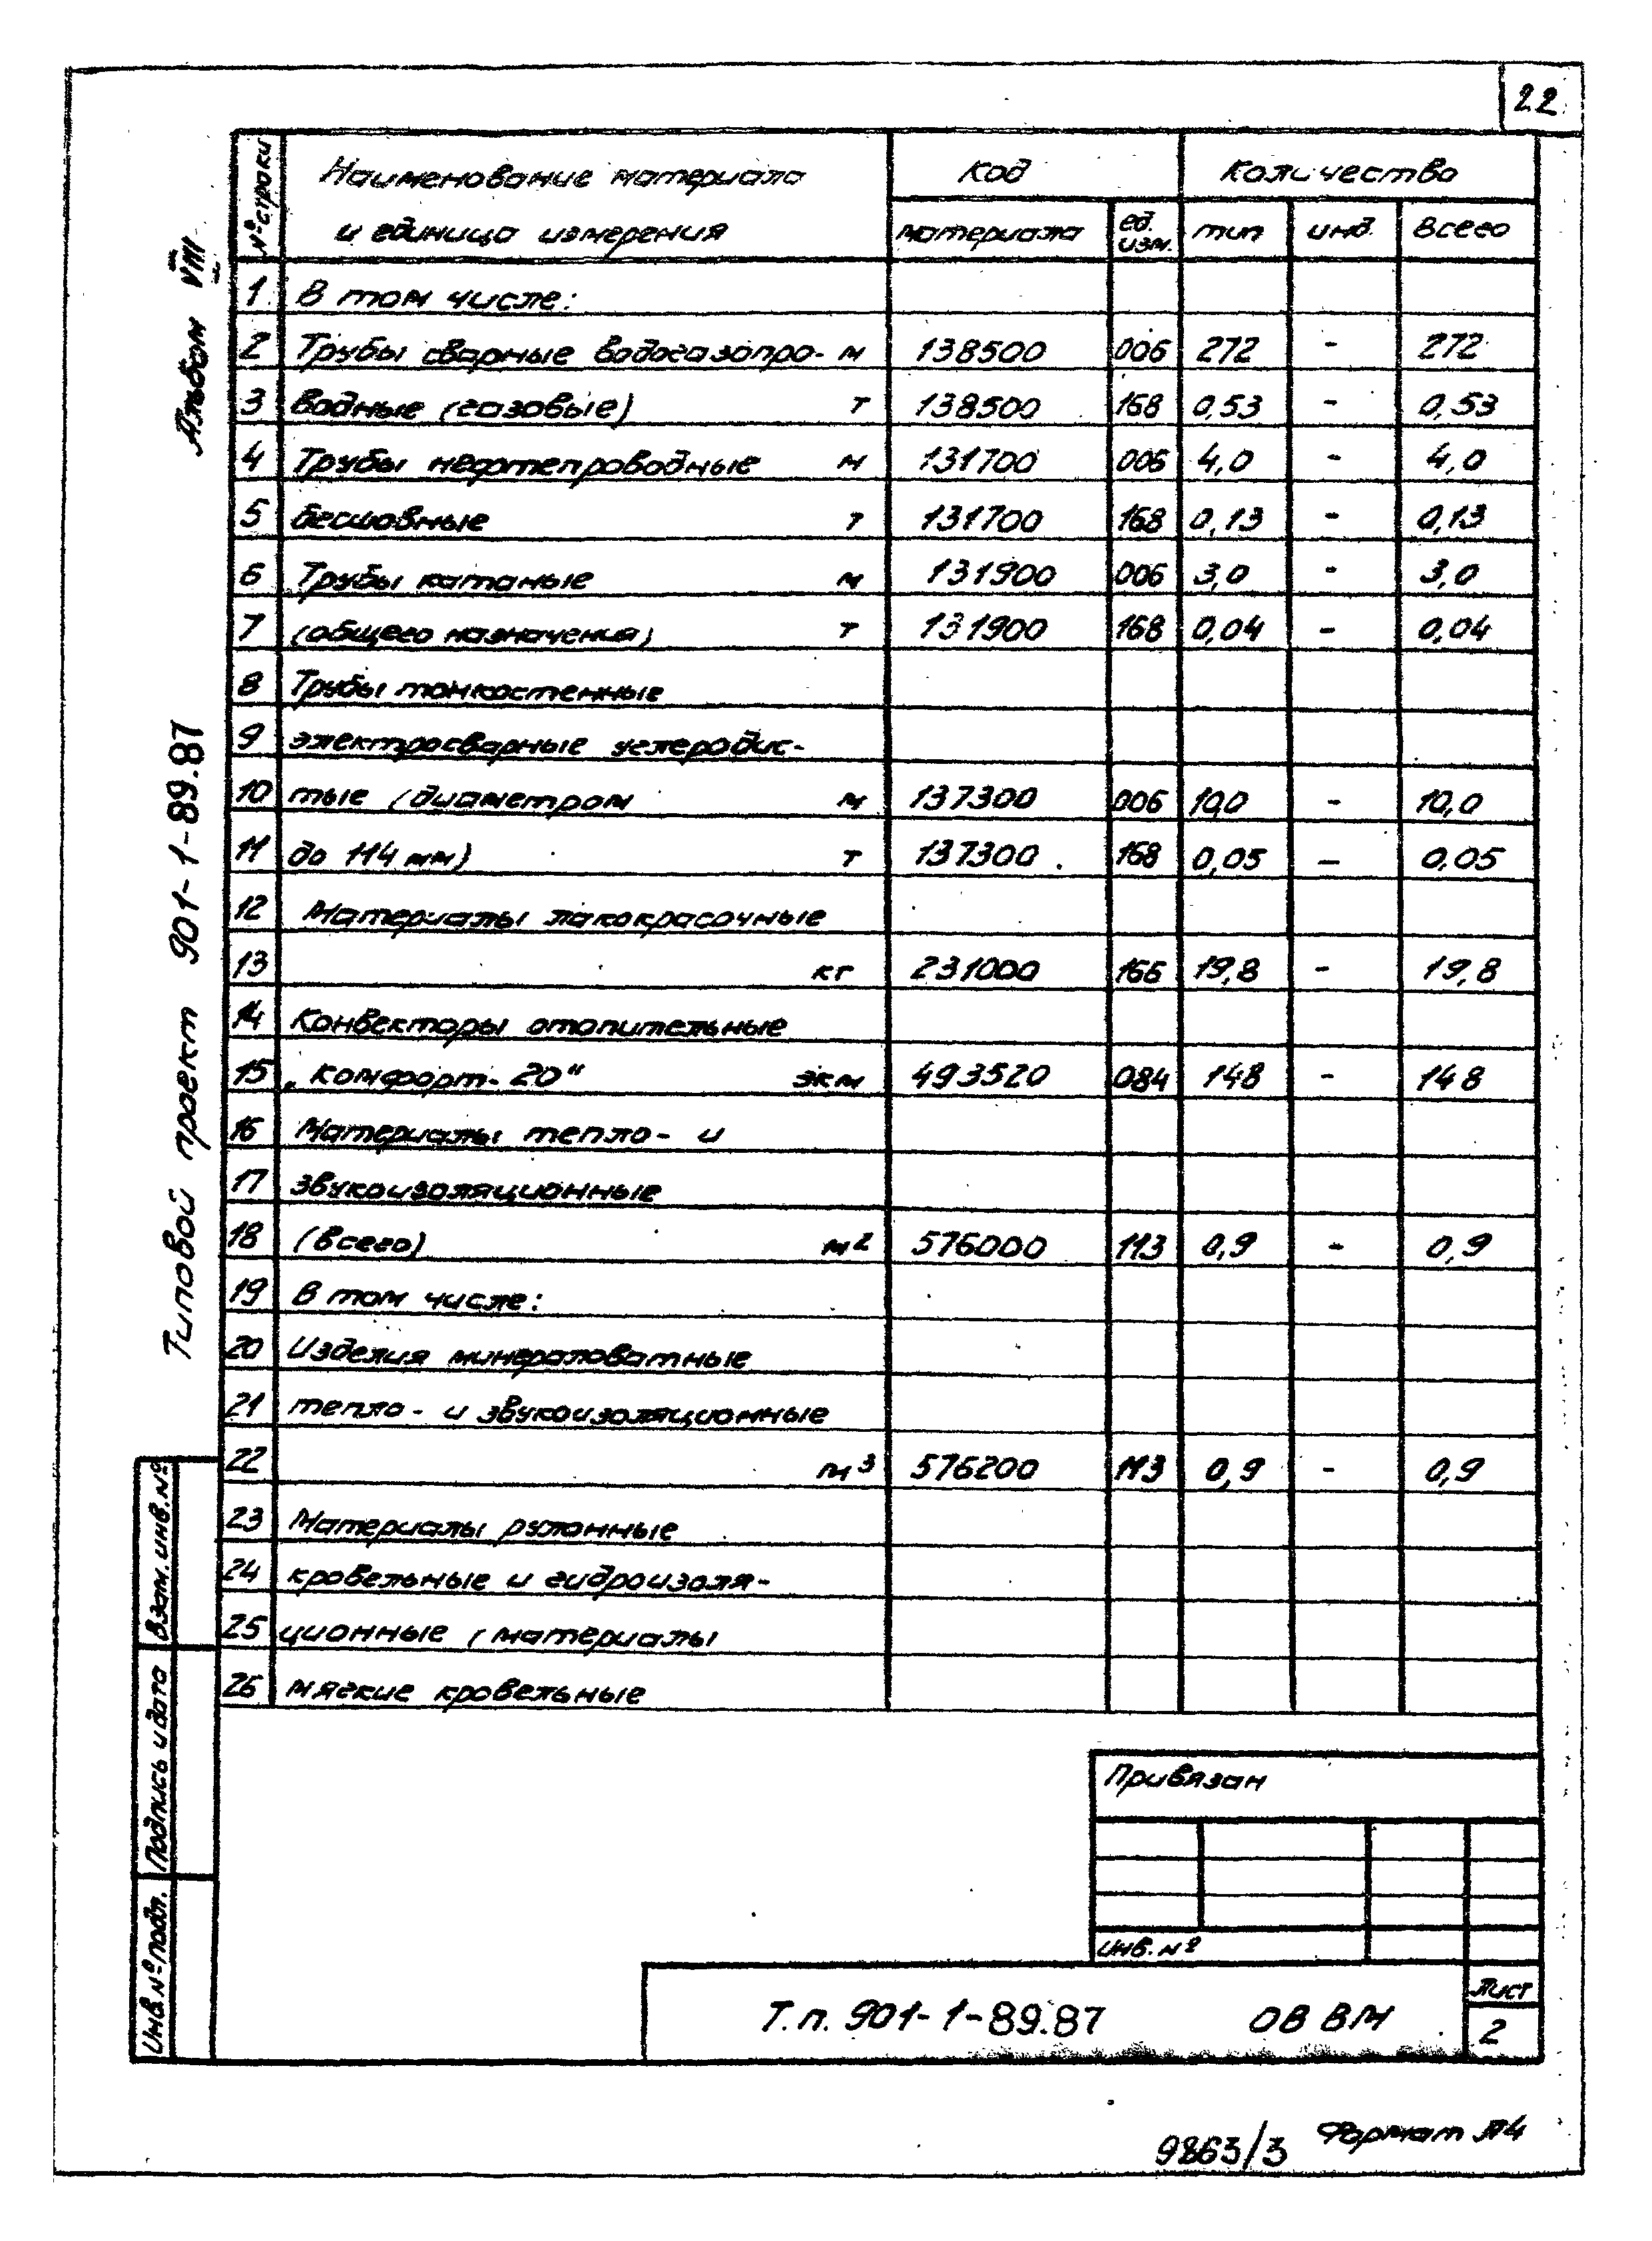 22
Альбом VIII
Типовой проект 901-1-89.87
№ строки | Наименование материала и единица измерения | Код | Количество
материала | ед. изм. | тип | инд. | Всего
1 В том числе:
2 Трубы сварные водогазопро- м 138500 006 272 - 272
3 водные (газовые) т 138500 168 0,53 - 0,53
4 Трубы нефтепроводные м 131700 006 4,0 - 4,0
5 бесшовные т 131700 168 0,13 - 0,13
6 Трубы катаные м 131900 006 3,0 - 3,0
7 (общего назначения) т 131900 168 0,04 - 0,04
8 Трубы тонкостенные
9 электросварные углеродис-
10 тые (диаметром м 137300 006 10,0 - 10,0
11 до 114 мм) т 137300 168 0,05 - 0,05
12 Материалы лакокрасочные
13 кг 231000 166 19,8 - 19,8
14 Конвекторы отопительные
15 „Комфорт-20" экм 493520 084 148 - 148
16 Материалы тепло- и
17 звукоизоляционные
18 (всего) м2 576000 113 0,9 - 0,9
19 В том числе:
20 Изделия минераловатные
21 тепло- и звукоизоляционные
22 м3 576200 113 0,9 - 0,9
23 Материалы рулонные
24 кровельные и гидроизоля-
25 ционные (материалы
26 мягкие кровельные
Взам. инв. №
Подпись и дата
Инв. № подл.
Привязан
Инв. №
Т.п. 901-1-89.87 ОВ ВМ
Лист
2
9863/3 Формат А4